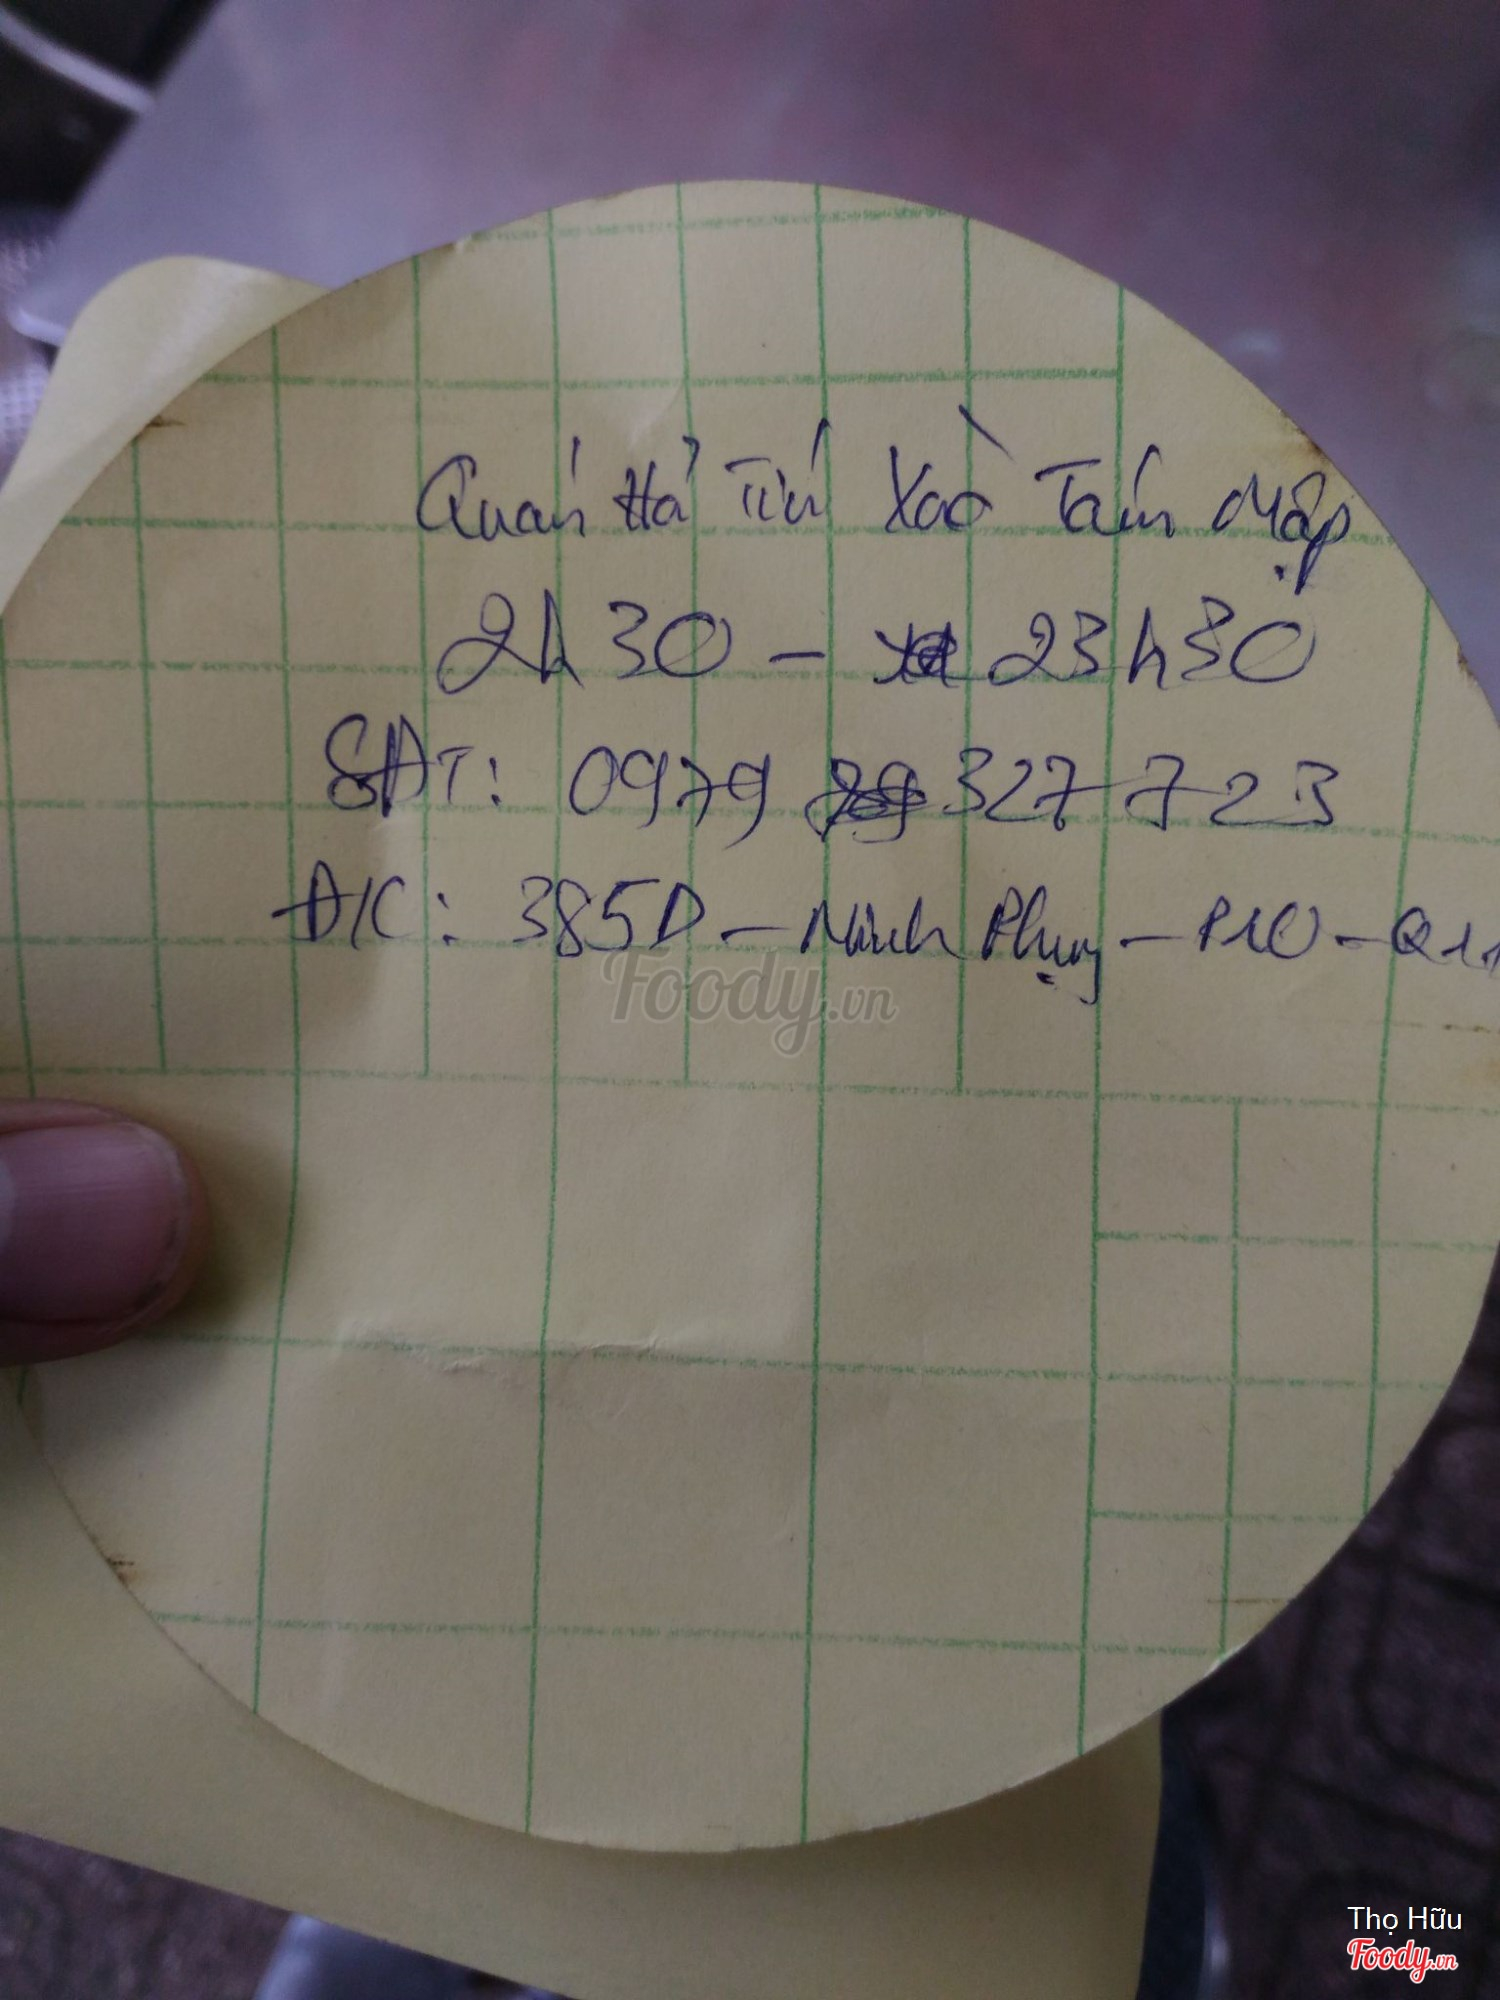 Quán Hủ Tiếu Xào Tám Mập
2h30 - 23h30
SĐT: 0979 327 723
Đ/C: 385D - Minh Phụng - P10 - Q11
Foody.vn
Thọ Hữu
Foody.vn